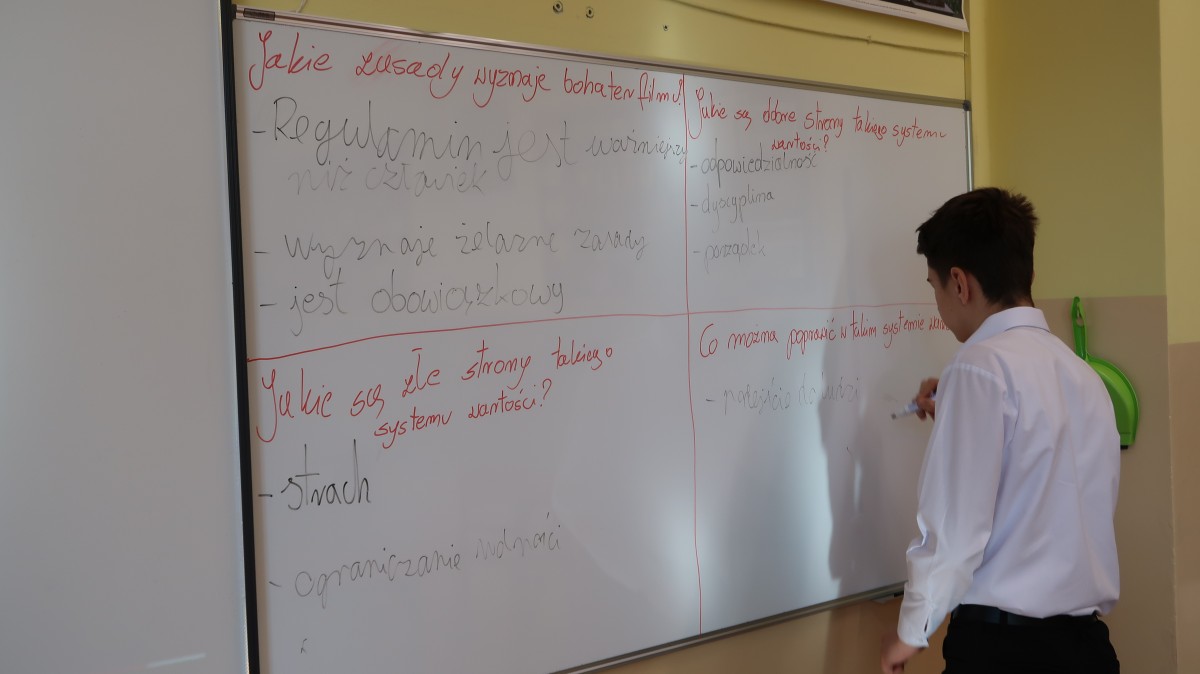 Jakie zasady wyznaje bohater filmu?
- Regulamin jest ważniejszy
niż człowiek
- wyznaje żelazne zasady
- jest obowiązkowy
Jakie są dobre strony takiego systemu
wartości?
- odpowiedzialność
- dyscyplina
- porządek
Jakie są złe strony takiego
systemu wartości?
- strach
- ograniczanie wolności
Co można poprawić w takim systemie
- podejście do ludzi